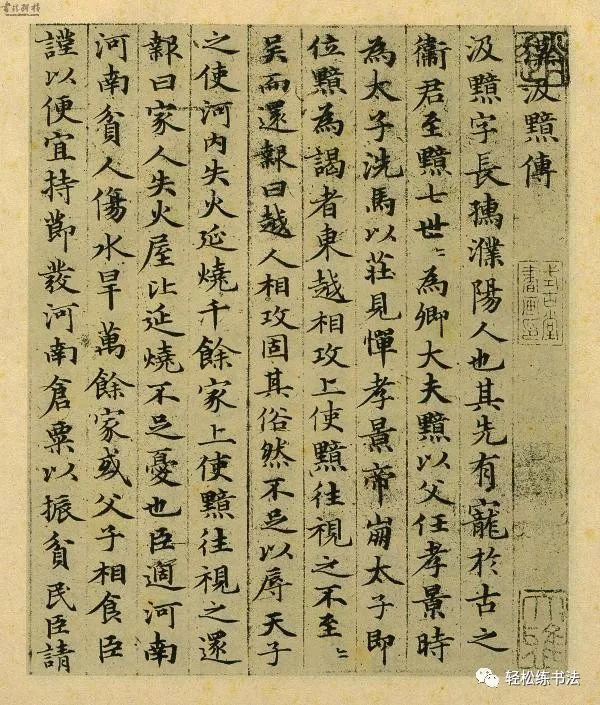 汲黯傳
汲黯字長孺濮陽人也其先有寵於古之
衞君至黯七世〻為卿大夫黯以父任孝景時
為太子洗馬以莊見憚孝景帝崩太子即
位黯為謁者東越相攻上使黯往視之不至〻
吳而還報曰越人相攻固其俗然不足以辱天子
之使河內失火延燒千餘家上使黯往視之還
報曰家人失火屋比延燒不足憂也臣適河南
河南貧人傷水旱萬餘家或父子相食臣
謹以便宜持節發河南倉粟以振貧民臣請
轻松练书法